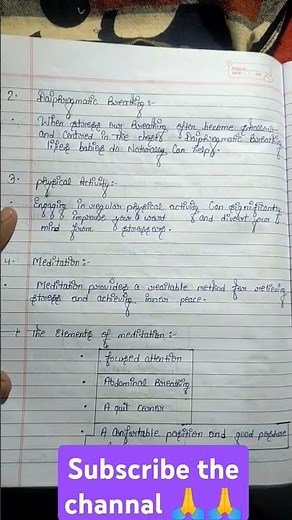 2. Daiphragmatic Breathing :-
• When stress our Breathing often become shallow
and centred in the chest. Daiphragmatic Breath
lifes babies do Naturally Can help.
3. physical Activity :-
• Engaging in regular physical activity Can significantly
improve your and divert your
mind from
4. Meditation :-
• Meditation provides a method for relieving
stress and achieving inner peace.
The Elements of meditation :-
• focused attention
• Abdominal Breathing
• A quit corner
• A Comfortable position and good posture
Subscribe the
channal 🙏🙏